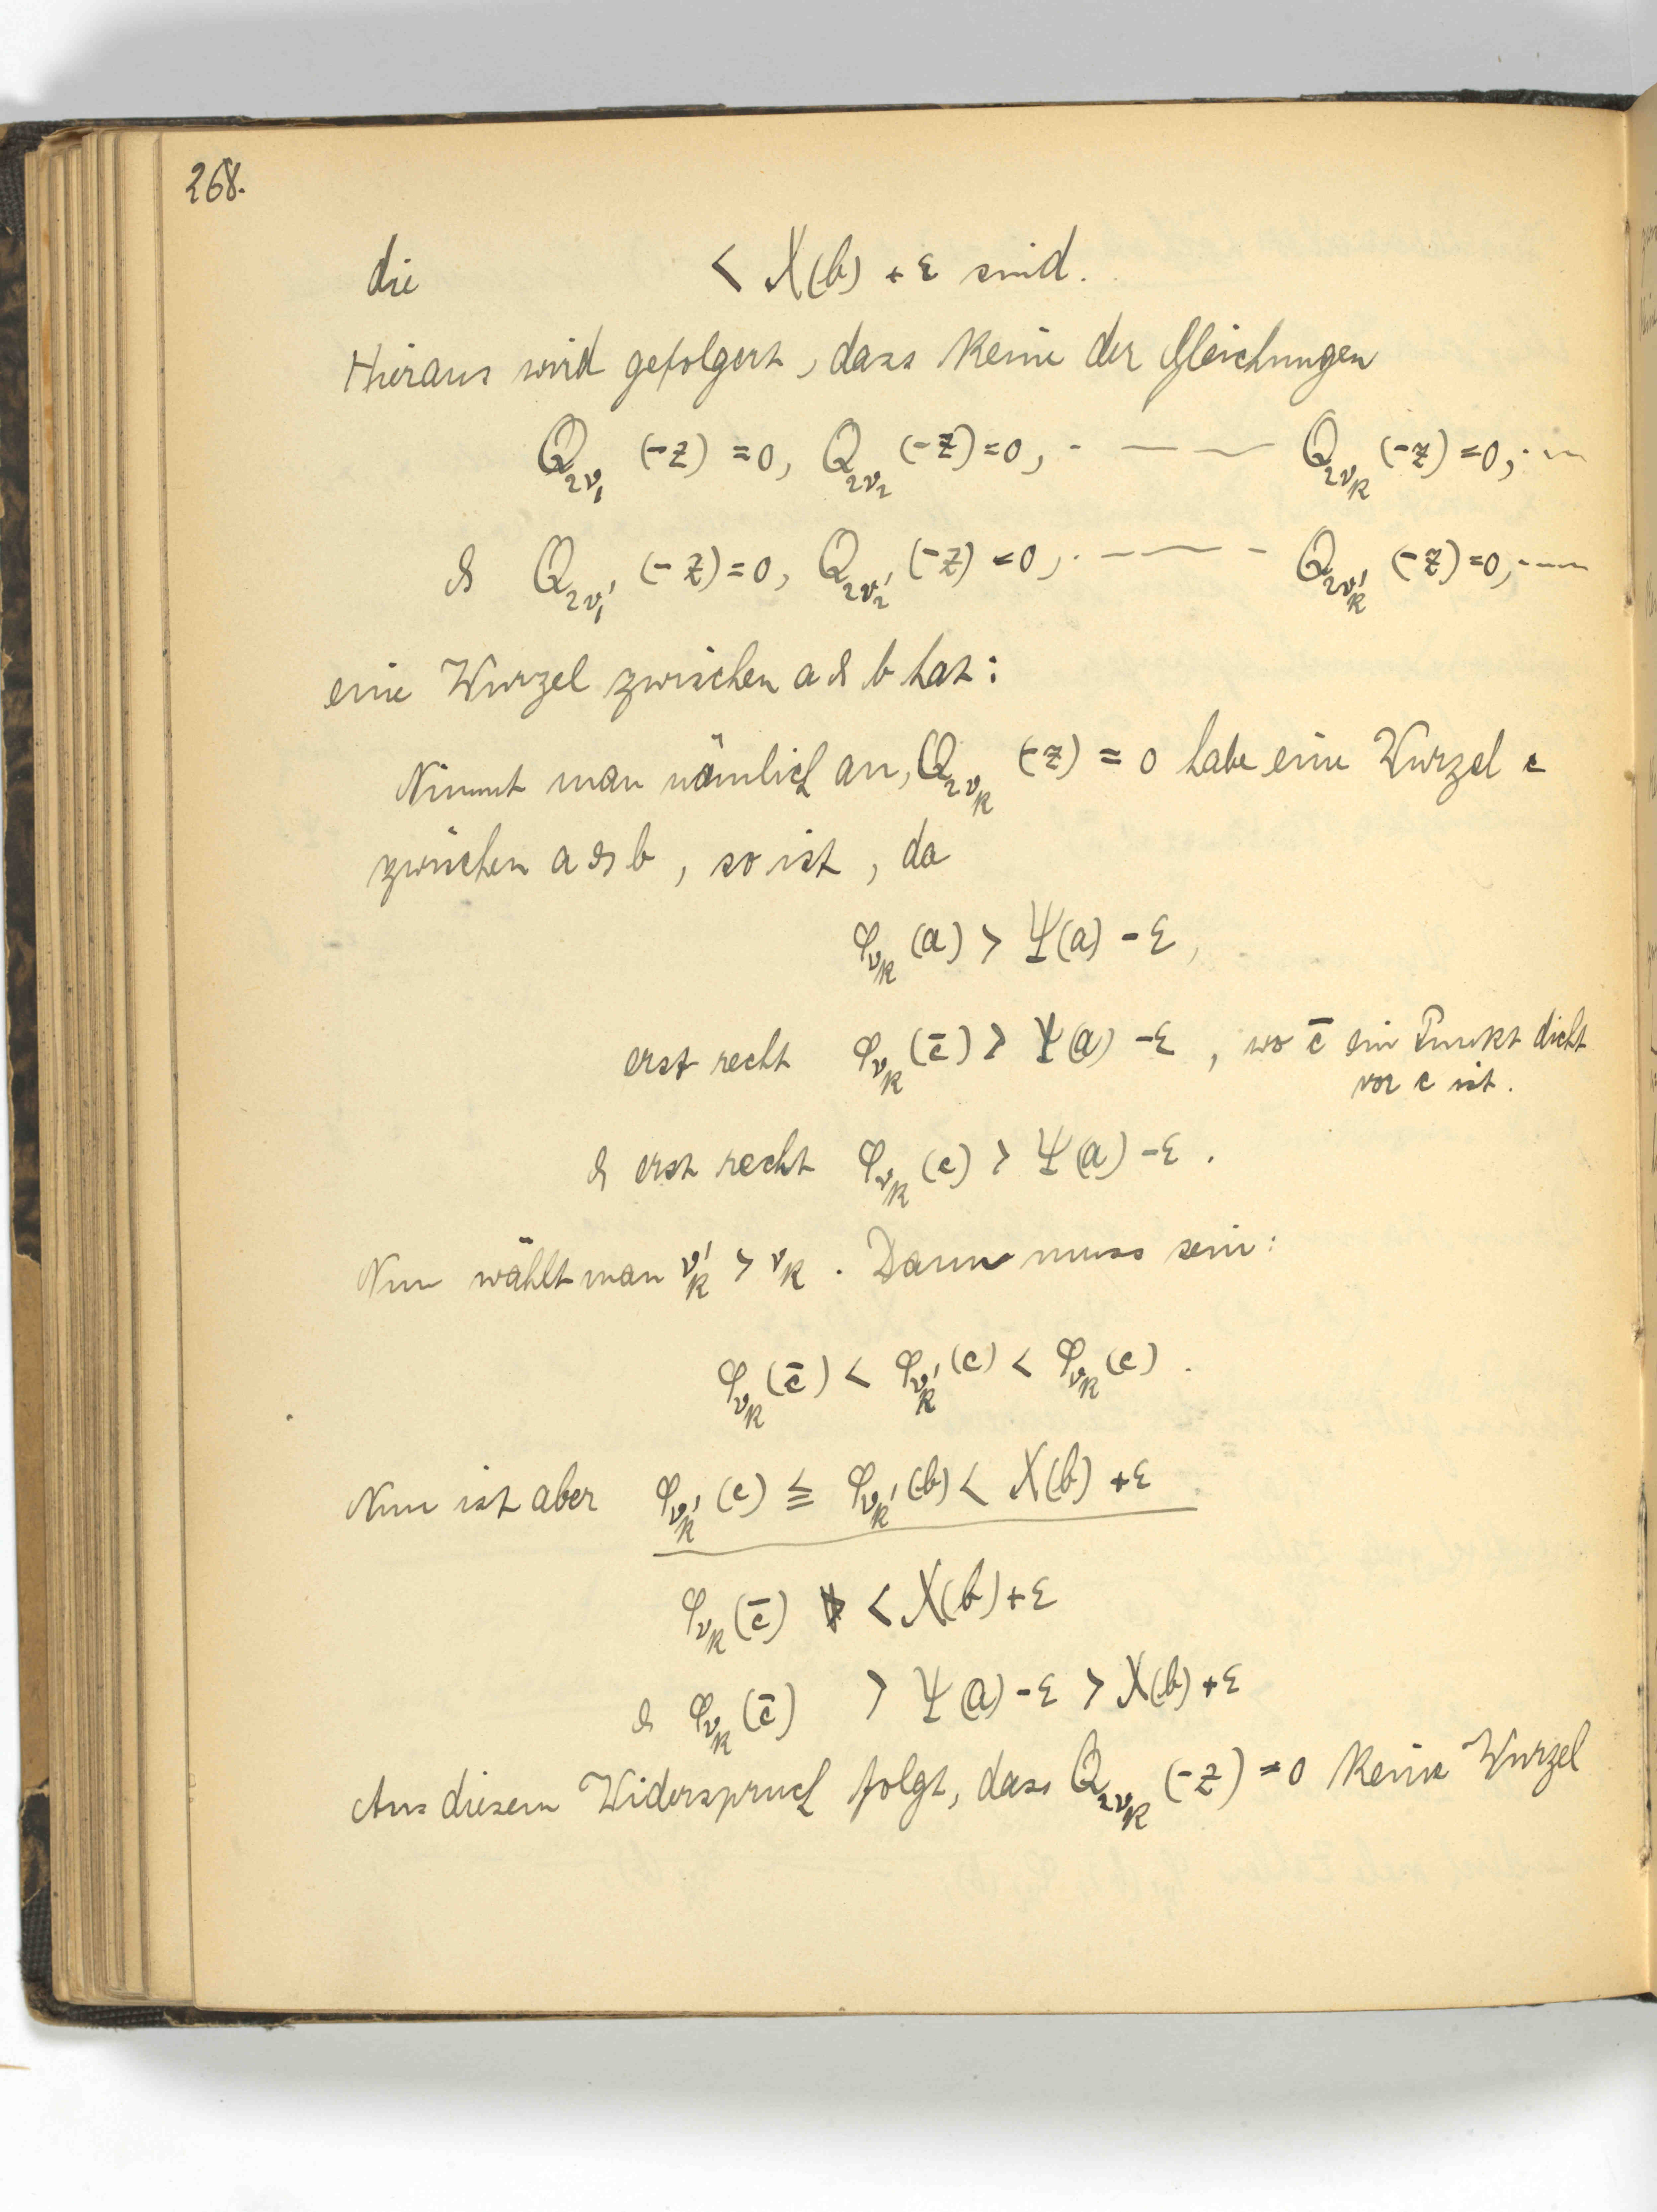 268.
die < χ(b) + ε sind.
Hieraus wird gefolgert, dass keine der Gleichungen
Q_{2ν_1} (-z) = 0, Q_{2ν_2} (-z) = 0, · — — — Q_{2ν_k} (-z) = 0, · —
& Q_{2ν_1'} (-z) = 0, Q_{2ν_2'} (-z) = 0, · — — — - Q_{2ν_k'} (-z) = 0, · — —
eine Wurzel zwischen a & b hat:
Nimmt man nämlich an, Q_{2ν_k} (-z) = 0 habe eine Wurzel c
zwischen a & b, so ist, da
φ_{ν_k} (a) > Ψ(a) - ε,
erst recht φ_{ν_k} (c̄) > Ψ(a) - ε, wo c̄ ein Punkt dicht
vor c ist.
& erst recht φ_{ν_k} (c) > Ψ(a) - ε.
Nun wählt man ν_k' > ν_k. Dann muss sein:
φ_{ν_k} (c̄) < φ_{ν_k'} (c) < φ_{ν_k} (c).
Nun ist aber φ_{ν_k'} (c) ≦ φ_{ν_k'} (b) < χ(b) + ε
φ_{ν_k} (c̄) < χ(b) + ε
& φ_{ν_k} (c̄) > Ψ(a) - ε > χ(b) + ε
Aus diesem Widerspruch folgt, dass Q_{2ν_k} (-z) = 0 keine Wurzel